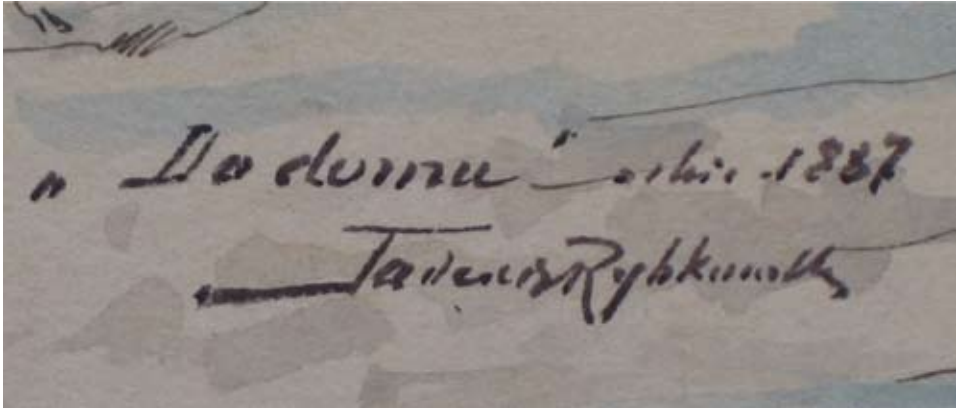 „Do domu" — szkic 1887
Tadeusz Rybkowski